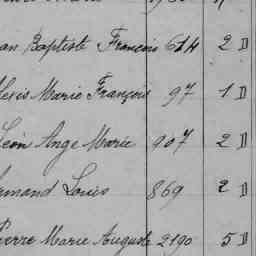 an Baptiste Francois 614 2 D
lexis Marie François 97 1 D
Léon Ange Marie 907 2 D
rmand Louis 869 2 D
Pierre Marie Auguste 2190 5 D